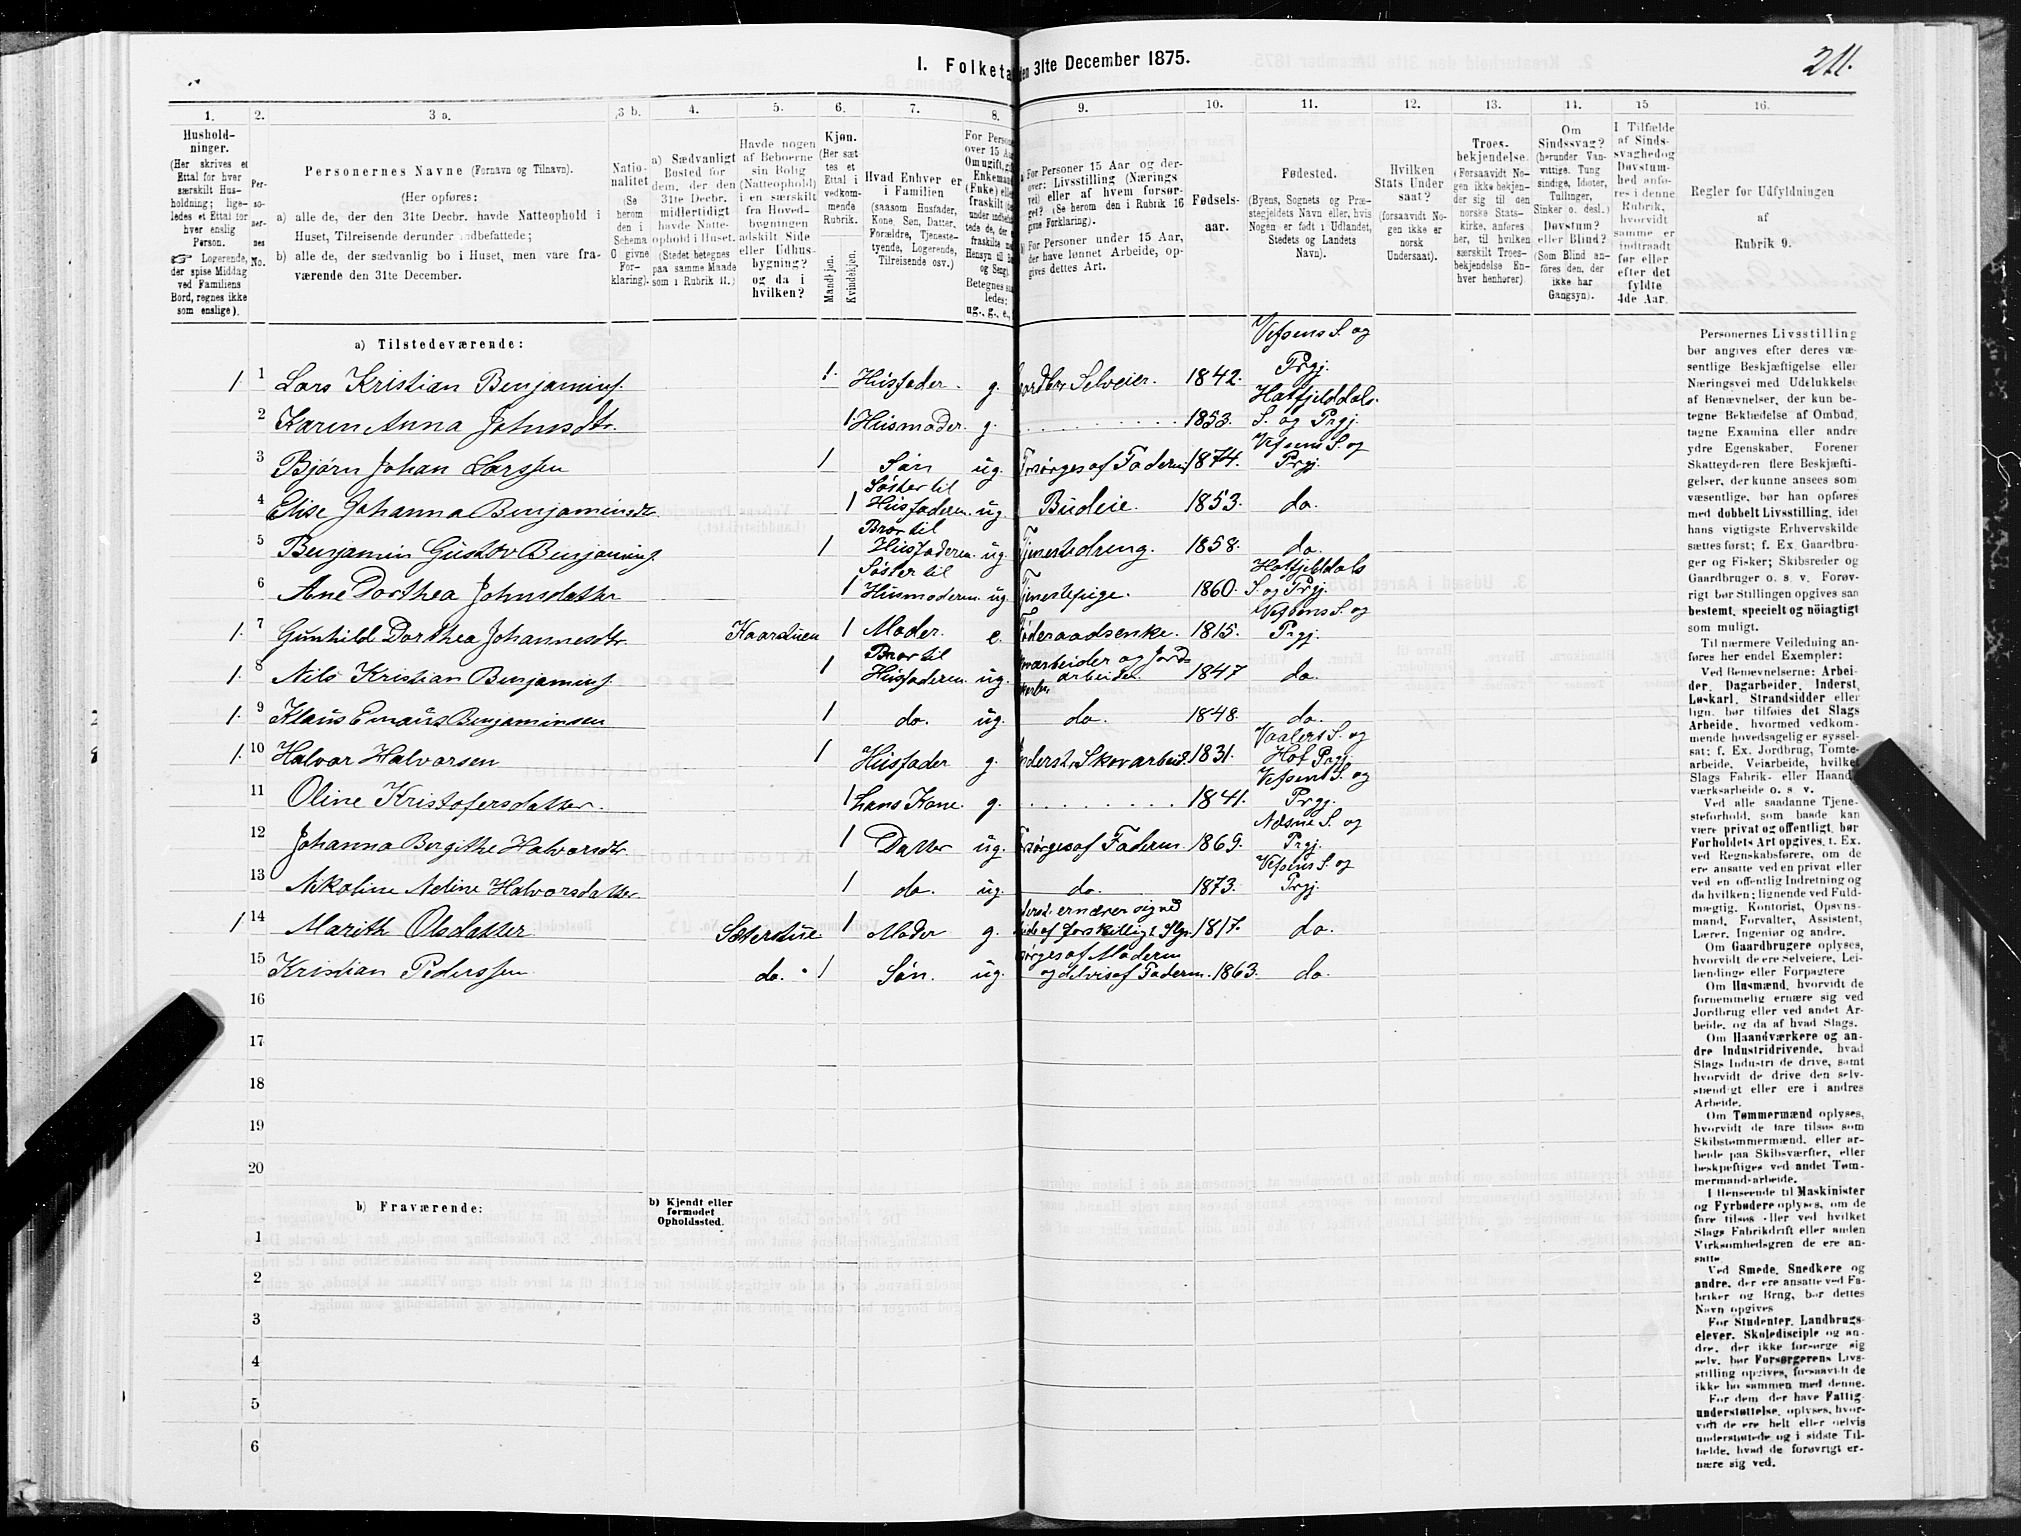 211.
I. Folketa den 31te December 1875.
1. 2. 3 a. 3 b. 4. 5. 6. 7. 8. 9. 10. 11. 12. 13. 14. 15 16.
Hushold-
ninger.
(Her skrives et
Ettal for hver
særskilt Hus-
holdning; lige-
ledes et Ettal for
hver enslig
Person.
☞ Logerende,
der spise Middag
ved Familiens
Bord, regnes ikke
som enslige).
Per-
so-
ner-
nes
No.
Personernes Navne (Fornavn og Tilnavn).
(Her opføres:
a) alle de, der den 31te Decbr. havde Natteophold i
Huset, Tilreisende derunder indbefattede;
b) alle de, der sædvanlig bo i Huset, men vare fra-
værende den 31te December.
Natio-
nalitet
(Se
herom
den i
Schema
O givne
For-
klaring).
a) Sædvanligt
Bosted for
dem, der den
31te Decbr.
midlertidigt
havde Natte-
ophold i Huset.
(Stedet betegnes
paa samme Maade
som i Rubrik 11.)
Havde nogen
af Beboerne
sin Bolig
(Natteophold)
i en særskilt
fra Hoved-
bygningen
adskilt Side
eller Udhus-
bygning?
og da i
hvilken?
Kjøn.
(Her sæt
tes et
Ettal i
vedkom-
mende
Rubrik.
Mandkjøn.
Kvindekjøn.
Hvad Enhver er
i Familien
(saasom Husfader,
Kone, Søn, Datter,
Forældre, Tjeneste-
tyende, Logerende,
Tilreisende osv.)
For Persone
over 15 Aar
Om ugift, gif
Enkemand
(Fnke) eller
fraskilt
Betegnes saa
ledes:
ug., g., e.,
For Personer 15 Aar og der-
over: Livsstilling (Nærings
vei) eller af hvem forsør-
get? (Se herom den i Rubrik 16
givne Forklaring).
For Personer under 15 Aar,
der have lønnet Arbeide, op-
gives dettes Art.
Fødsels-
aar.
Fødested.
(Byens, Sognets og Præ-
stegjeldets Navn eller, hvis
Nogen er født i Udlandet,
Stedets og Landets
Navn).
Hvilken
Stats Under
saat?
(forsaavidt No-
gen ikke er
norsk
Undersaat).
Troes-
bekjendelse.
(Forsaavidt No-
gen ikke bekjen-
der sig til den
norske Stats-
kirke, anføres
her, til hvilken
særskilt Troes-
bekjendelse En-
hver henhører).
Om
Sindssvag?
(herunder Van-
vittige, Tung
sindige, Idioter,
Tullinger,
Sinker o. desl.)
Døvstum?
eller Blind?
(Som Blind an-
føres den, der
ikke har
Gangsyn).
I Tilfælde
af Sinds-
svaghed og
Døvstum-
hed anfø-
res i denne
Rubrik,
hvorvidt
samme er
indtraadt
før eller
efter det
fyldte
4de Aar.
Regler for Udfyldningen
af
Rubrik 9.
a) Tilstedeværende:
1. 1 Lars Kristian Benjamins. 1. Husfader. g. Selveier. 1842. Vefsens S. og Prgj.
2 Karen Anna Johnsdtr. 1. Husmoder. g. 1853. Hatfjelddals S. og Prgj.
3 Bjørn Johan Larssen 1 Søn ug. Forsørges af Faderen 1874. Vefsens S. og Prgj.
4 Elise Johanna Benjaminsdtr. 1 Søster til Husfaderen. ug. Budeie. 1853. do.
5 Benjamin Gustav Benjamins. 1 Bror til Husfaderen. ug. Tjenestedreng. 1858. do.
6 Ane Dorthea Johnsdatter 1 Søster til Husmoderen ug. Tjenestepige. 1860. Hatfjelddals S. og Prgj.
1. 7 Gunhild Dorthea Johannesdtr. Kaarstuen 1 Moder. e. Føderaadsenke. 1815. Vefsens S. og Prgj.
1. 8 Nils Kristian Benjamins. 1 Bror til Husfaderen ug. arbeider og Jord-arbeider. 1847 do.
1. 9 Klaus Benjaminsen 1 do. ug. do. 1848. do.
1. 10 Halvor Halvorsen 1 Husfader g. Inderst. Skovarbeid. 1831. Vaalers S. og Hof Prgj.
11 Oline Kristofersdatter. 1 hans Kone. g. 1841. Vefsens S. og Prgj.
12 Johanna Bergithe Halvorsdtr. 1 Datter ug. Forsørges af Faderen 1869. Næsne S. og Prgj.
13 Nikoline Meline Halvorsdatter 1 do. ug. do. 1873. Vefsens S. og Prgj.
1 14 Marith Olsdatter Sæterstue 1 Moder g. ernærer sig ved af forskjelligt Slgs. 1817. do.
15 Kristian Pederssen. do. 1 Søn. ug. forsørges af Moderen og delvis af Faderen. 1863. do.
16
17
18
19
20
b) Fraværende:
b) Kjendt eller
formodet
Opholdssted.
1
2
3
4
5
6
Personernes Livsstilling
bør angives efter deres væ-
sentlige Beskjæftigelse eller
Næringsvei med Udelukkelse
af Benævnelser, der kun be-
tegne Beklædelse af Ombud,
tagne Examina eller andre
ydre Egenskaber, Forener
Skatteyderen flere Beskjæfti-
gelser, der kunne ansees som
væsentlige, bør han opføres
med dobbelt Livsstilling, idet
hans vigtigste Erhvervskilde
sættes først; f. Ex. Gaardbru-
ger og Fisker; Skibsreder og
Gaardbruger o. s. v. Forøv-
rigt bør Stillingen opgives saa
bestemt, specielt og nöiagtigt
som muligt.
Til nærmere Veiledning an-
føres her endel Exempler:
Ved Benævnelserne: Arbei-
der, Dagarbeider, Inderst,
Løskarl, Strandsidder eller
lign. bør tilføies det Slags
Arbeide, hvormed vedkom-
mende hovedsagelig er syssel-
sat; f. Ex. Jordbrug, Tomte-
arbeide, Veiarbeide, hvilket
Slags Fabrik- eller Haand-
værksarbeide o. s. v.
Ved alle saadanne Tjene-
steforhold, som baade kan
være privat og offentligt, bør
Forholdets Art opgives, f. Ex.
ved Regnskabsførere, om de
ere ansatte ved en privat eller
ved en offentlig Indretning og
da hvilken; lignende ved Fuld-
mægtig, Kontorist, Opsyns-
mand, Forvalter, Assistent,
Lærer, Ingeniør og andre.
Om Gaardbrugere oplyses,
hvorvidt de ere Selveiere, Lei-
lændinge eller Forpagtere
Om Husmænd, hvorvidt de
fornemmelig ernære sig ved
Jordbrug eller ved andet Ar-
beide, og da af hvad Slags.
Om Haandværkere og an-
dre Industridrivende, hvad
Slags Industri de drive, samt
hvorvidt de drive den selv-
stændigt eller ere i andres
Arbeide.
Om Tømmermænd oplyses,
hvorvidt de fare tilsøs som
Skibstømmermænd, eller ar-
beide paa Skibsværfter, eller
beskjæftiges ved andet Tøm-
mermand-arbeide.
I Henseende til Maskinister
og Fyrbødere oplyses, om de
fare tilsøs eller ved hvilket
Slags Fabrikdrift eller anden
Virksomhedsgren de ere an-
satte
Ved Smede, Snedkere og
andre, der ere ansatte ved Fa-
briker og Brug, bør dettes
Navn opgives
For Studenter, Landbrugs-
elever, Skoledisciple og an-
dre, der ikke forsørge sig
selv, bør Forsørgerens Livs-
stilling opgives, forsaavidt de
ikke bo sammen med denne.
For dem, der have Fattig-
understøttelse, oplyses, hvor-
vidt de ere helt eller delvis
understøttede og i sidste Til-
fælde, hvad de forøvrigt er-
nære sig ved.